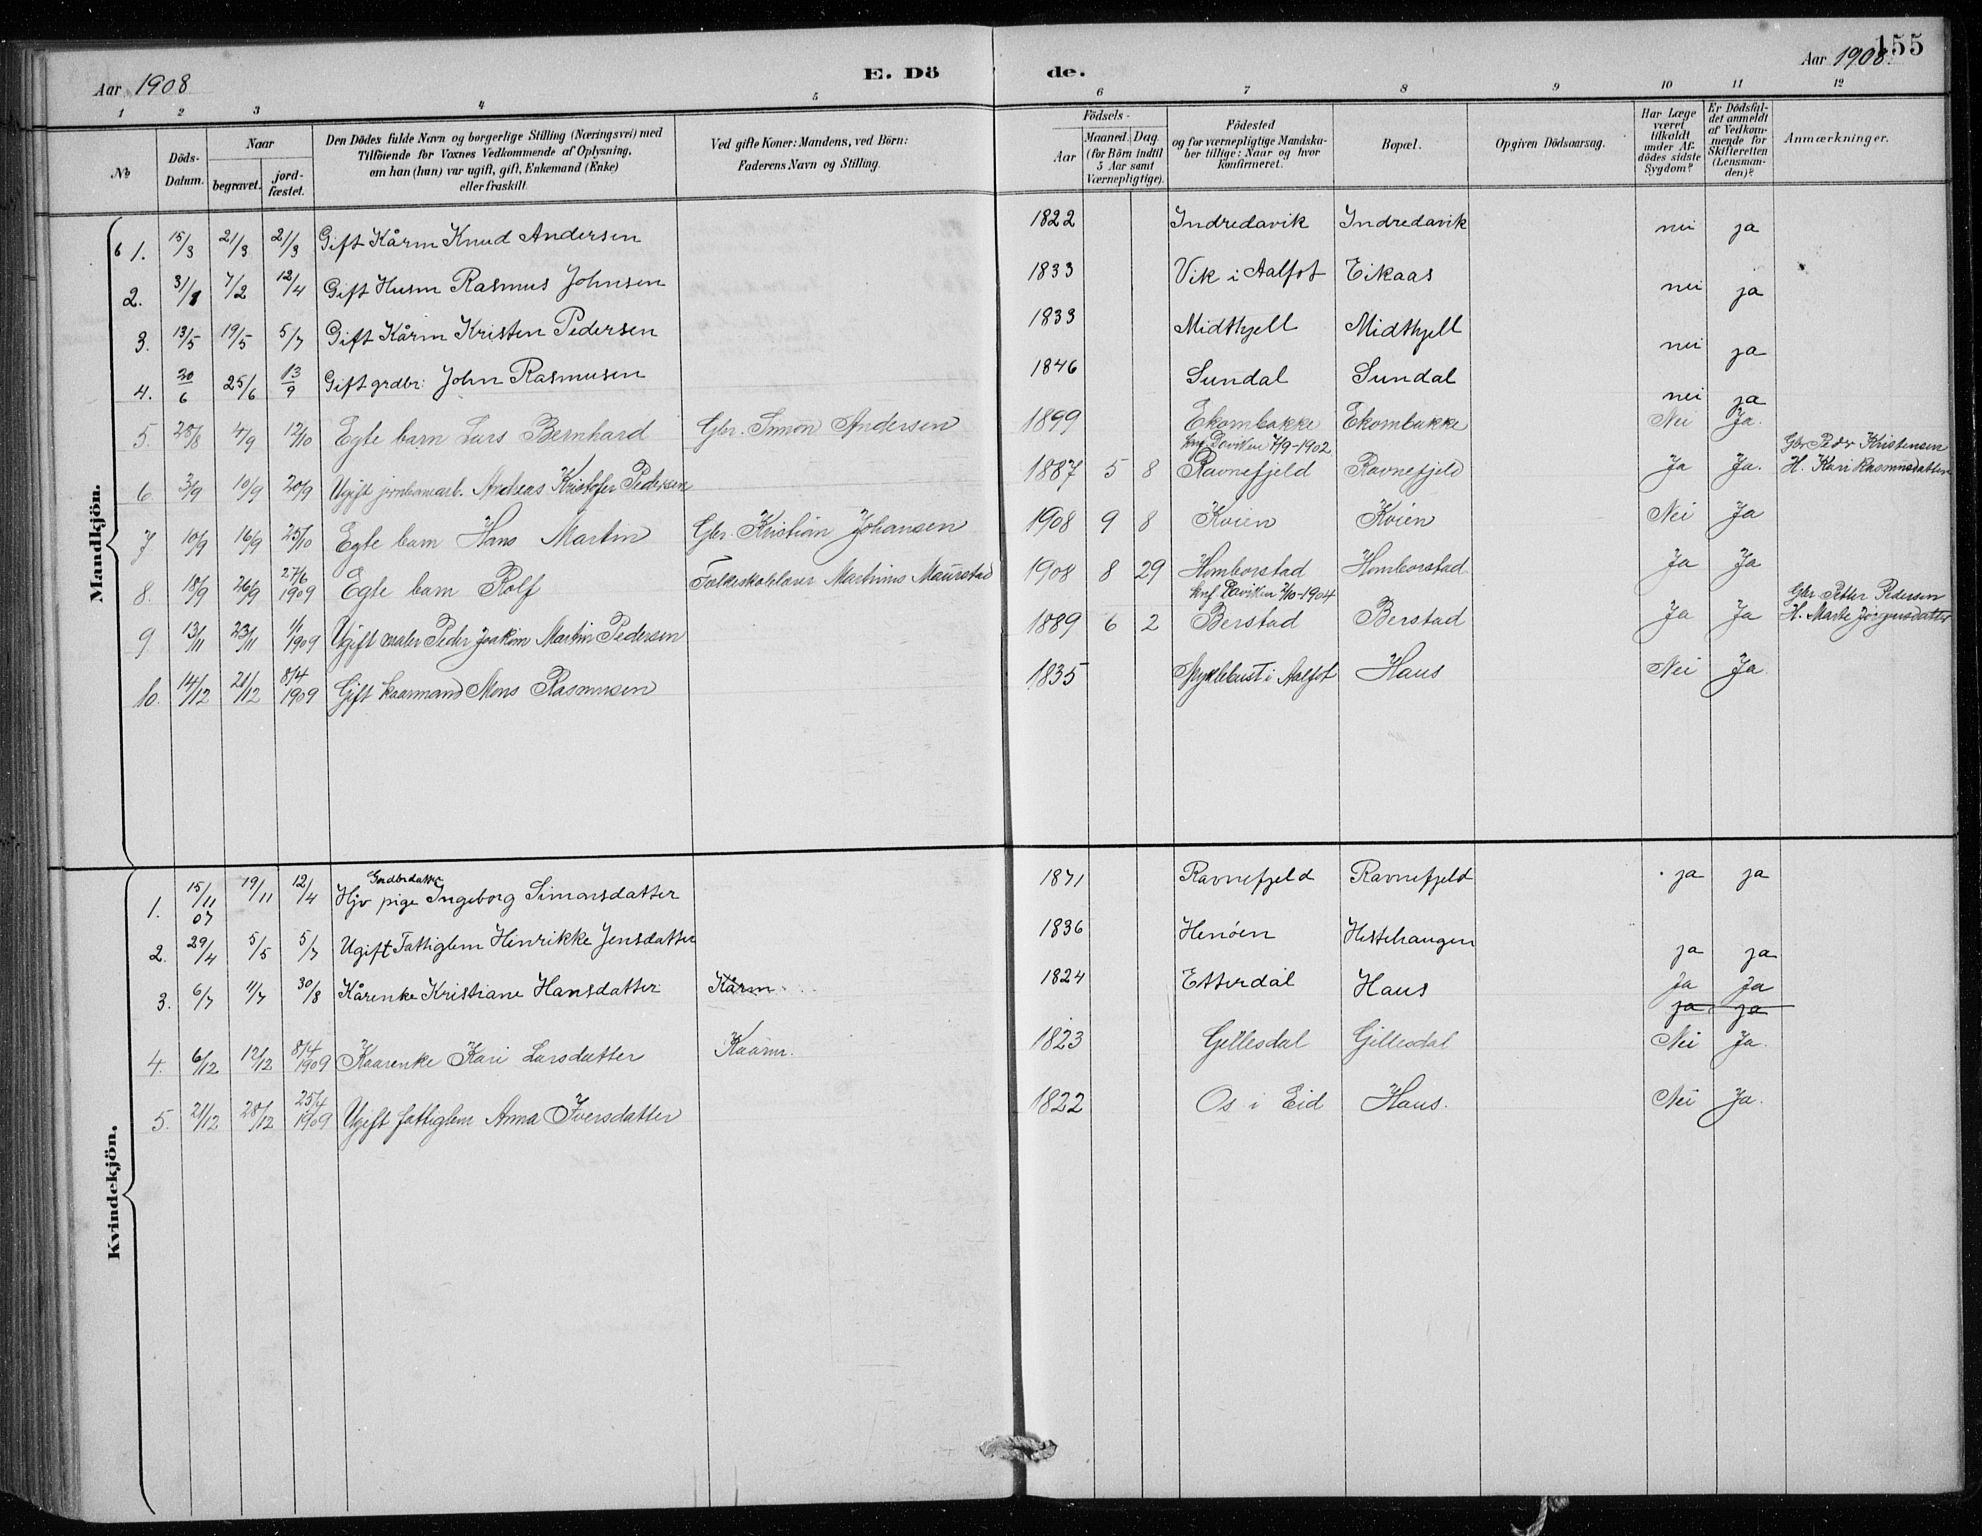 Aar 1908
E. Dö
de.
Aar 1908.
155
1 2 3 4 5 6 7 8 9 10 11 12
No
Döds-Datum.
Naar
begravet.
jord-fæstet.
Den Dödes fulde Navn og borgerlige Stilling (Næringsvei) med
Tilföiende for Voxnes Vedkommende af Oplysning,
om han (hun) var ugift, gift, Enkemand (Enke)
eller fraskilt.
Ved gifte Koner: Mandens, ved Börn:
Faderens Navn og Stilling.
Födsels-
Aar
Maaned. Dag.
(for Börn indtil
5 Aar samt
Værnepligtige).
Födested
og for værnepligtige Mandska-
ber tillige: Naar og hvor
konfirmeret.
Bopæl.
Opgiven Dödsaarsag.
Har Læge
været
tilkaldt
under Af-
dödes sidste
Sygdom?
Er Dödsfal-
det anmeldt
af Vedkom-
mende for
Skifteretten
(Lensman-
den)?
Anmærkninger.
Mandkjön.
6 1. 15/3 21/3 21/3 Gift Kårm Knud Andersen 1822 Indredavik Indredavik nei ja
2. 31/1 7/2 12/4 Gift Husm Rasmus Johnsen 1833 Vik i Aalfot Eikaas nei ja
3. 13/5 19/5 5/7 Gift Kårm Kristen Pedersen 1833 Midthjell Midthjell nei ja
4. 20/6 25/6 13/9 Gift grdbr: John Rasmusen 1846 Sundal Sundal nei ja
5. 28/8 4/9 12/10 Egte barn Lars Bernhard Gbr. Simon Andersen 1899 Ekornbakke Ekornbakke Nei Ja.
knf. Daviken 7/9-1902 Gbr Peder Kristensen
6. 3/9 10/9 20/9 Ugift jernbanearb. Andreas Kristofer Pedersen 1887 5 8 Ravnefjeld Ravnefjeld Ja Ja. H. Kari Rasmusdatter
7 10/9 16/9 25/10 Egte barn Hans Martin Gbr. Kristian Johansen 1908 9 8 Kvien Kvien Nei Ja
8. 18/9 26/9 27/6 1909 Egte barn Rolf Folkeskolelærer Martinus Maurstad 1908 8 29 Hornborstad Hornborstad Ja Ja
knf Daviken 2/10-1904 Gbr Petter Pedersen
9 13/11 23/11 1/1 1909 Ugift maler Peder Joakim Martin Pedersen 1889 6 2 Berstad Berstad Ja Ja H. Marte Jørgensdatter
10. 14/12 21/12 8/4 1909 Gift kaarmand Mons Rasmusen 1835 Myklebust i Aalfot Haus Nei Ja.
Kvindekjön.
Gardbrdatter
1. 15/11 07 19/11 12/4 Hjv pige Ingeborg Simonsdatter 1871 Ravnefjeld Ravnefjeld ja ja
2. 29/4 5/5 5/7 Ugift Fattiglem Henrikke Jensdatter 1836 Henøen Hestehaugen ja ja
3. 6/7 11/7 30/8 Kårenke Kristiane Hansdatter Kårm 1824 Etterdal Haus Ja Ja
ja ja
4. 6/12 12/12 8/4 1909 Kaarenke Kari Larsdatter Kaarm. 1823 Gillesdal Gillesdal Nei Ja.
5. 21/12 28/12 25/4 1909 Ugift fattiglem Anna Iversdatter 1822 Os i Eid Haus. Nei Ja.